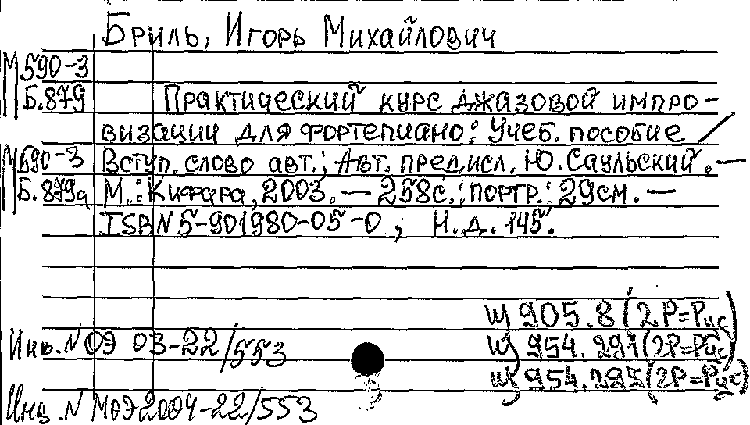 Бриль, Игорь Михайлович
М590-3
Б.879
Практический курс джазовой импро-
визации для фортепиано: Учеб. пособие /
М590-3 Вступ. слово авт.; Авт. предисл. Ю. Саульский. —
Б.879а М.: Кифара, 2003. — 258с.; портр.: 29см. —
ISBN 5-901980-05-0; Н.д. 145.
Щ905.8(2Р=Рус)
Инв. N ОЭ 03-22/553
Щ954.291(2Р=Рус)
Щ954.295(2Р=Рус)
Инв. N МОЭ2004-22/553